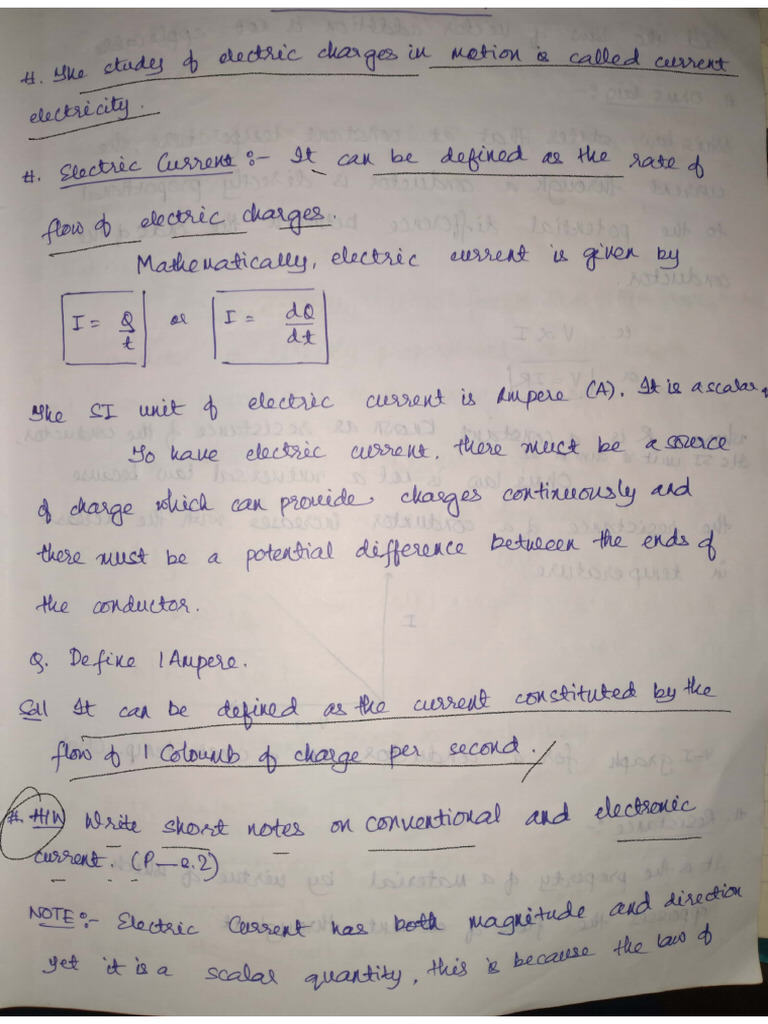 #. The study of electric charges in motion is called current
electricity.
#. Electric Current :- It can be defined as the rate of
flow of electric charges.
Mathematically, electric current is given by
I = Q/t or I = dQ/dt
The SI unit of electric current is Ampere (A). It is a scalar.
To have electric current, there must be a source
of charge which can provide charges continuously and
there must be a potential difference between the ends of
the conductor.
Q. Define 1 Ampere.
Soll It can be defined as the current constituted by the
flow of 1 Coloumb of charge per second.
#. H/W Write short notes on conventional and electronic
current. (P-2.2)
NOTE :- Electric Current has both magnitude and direction
yet it is a scalar quantity, this is because the law of